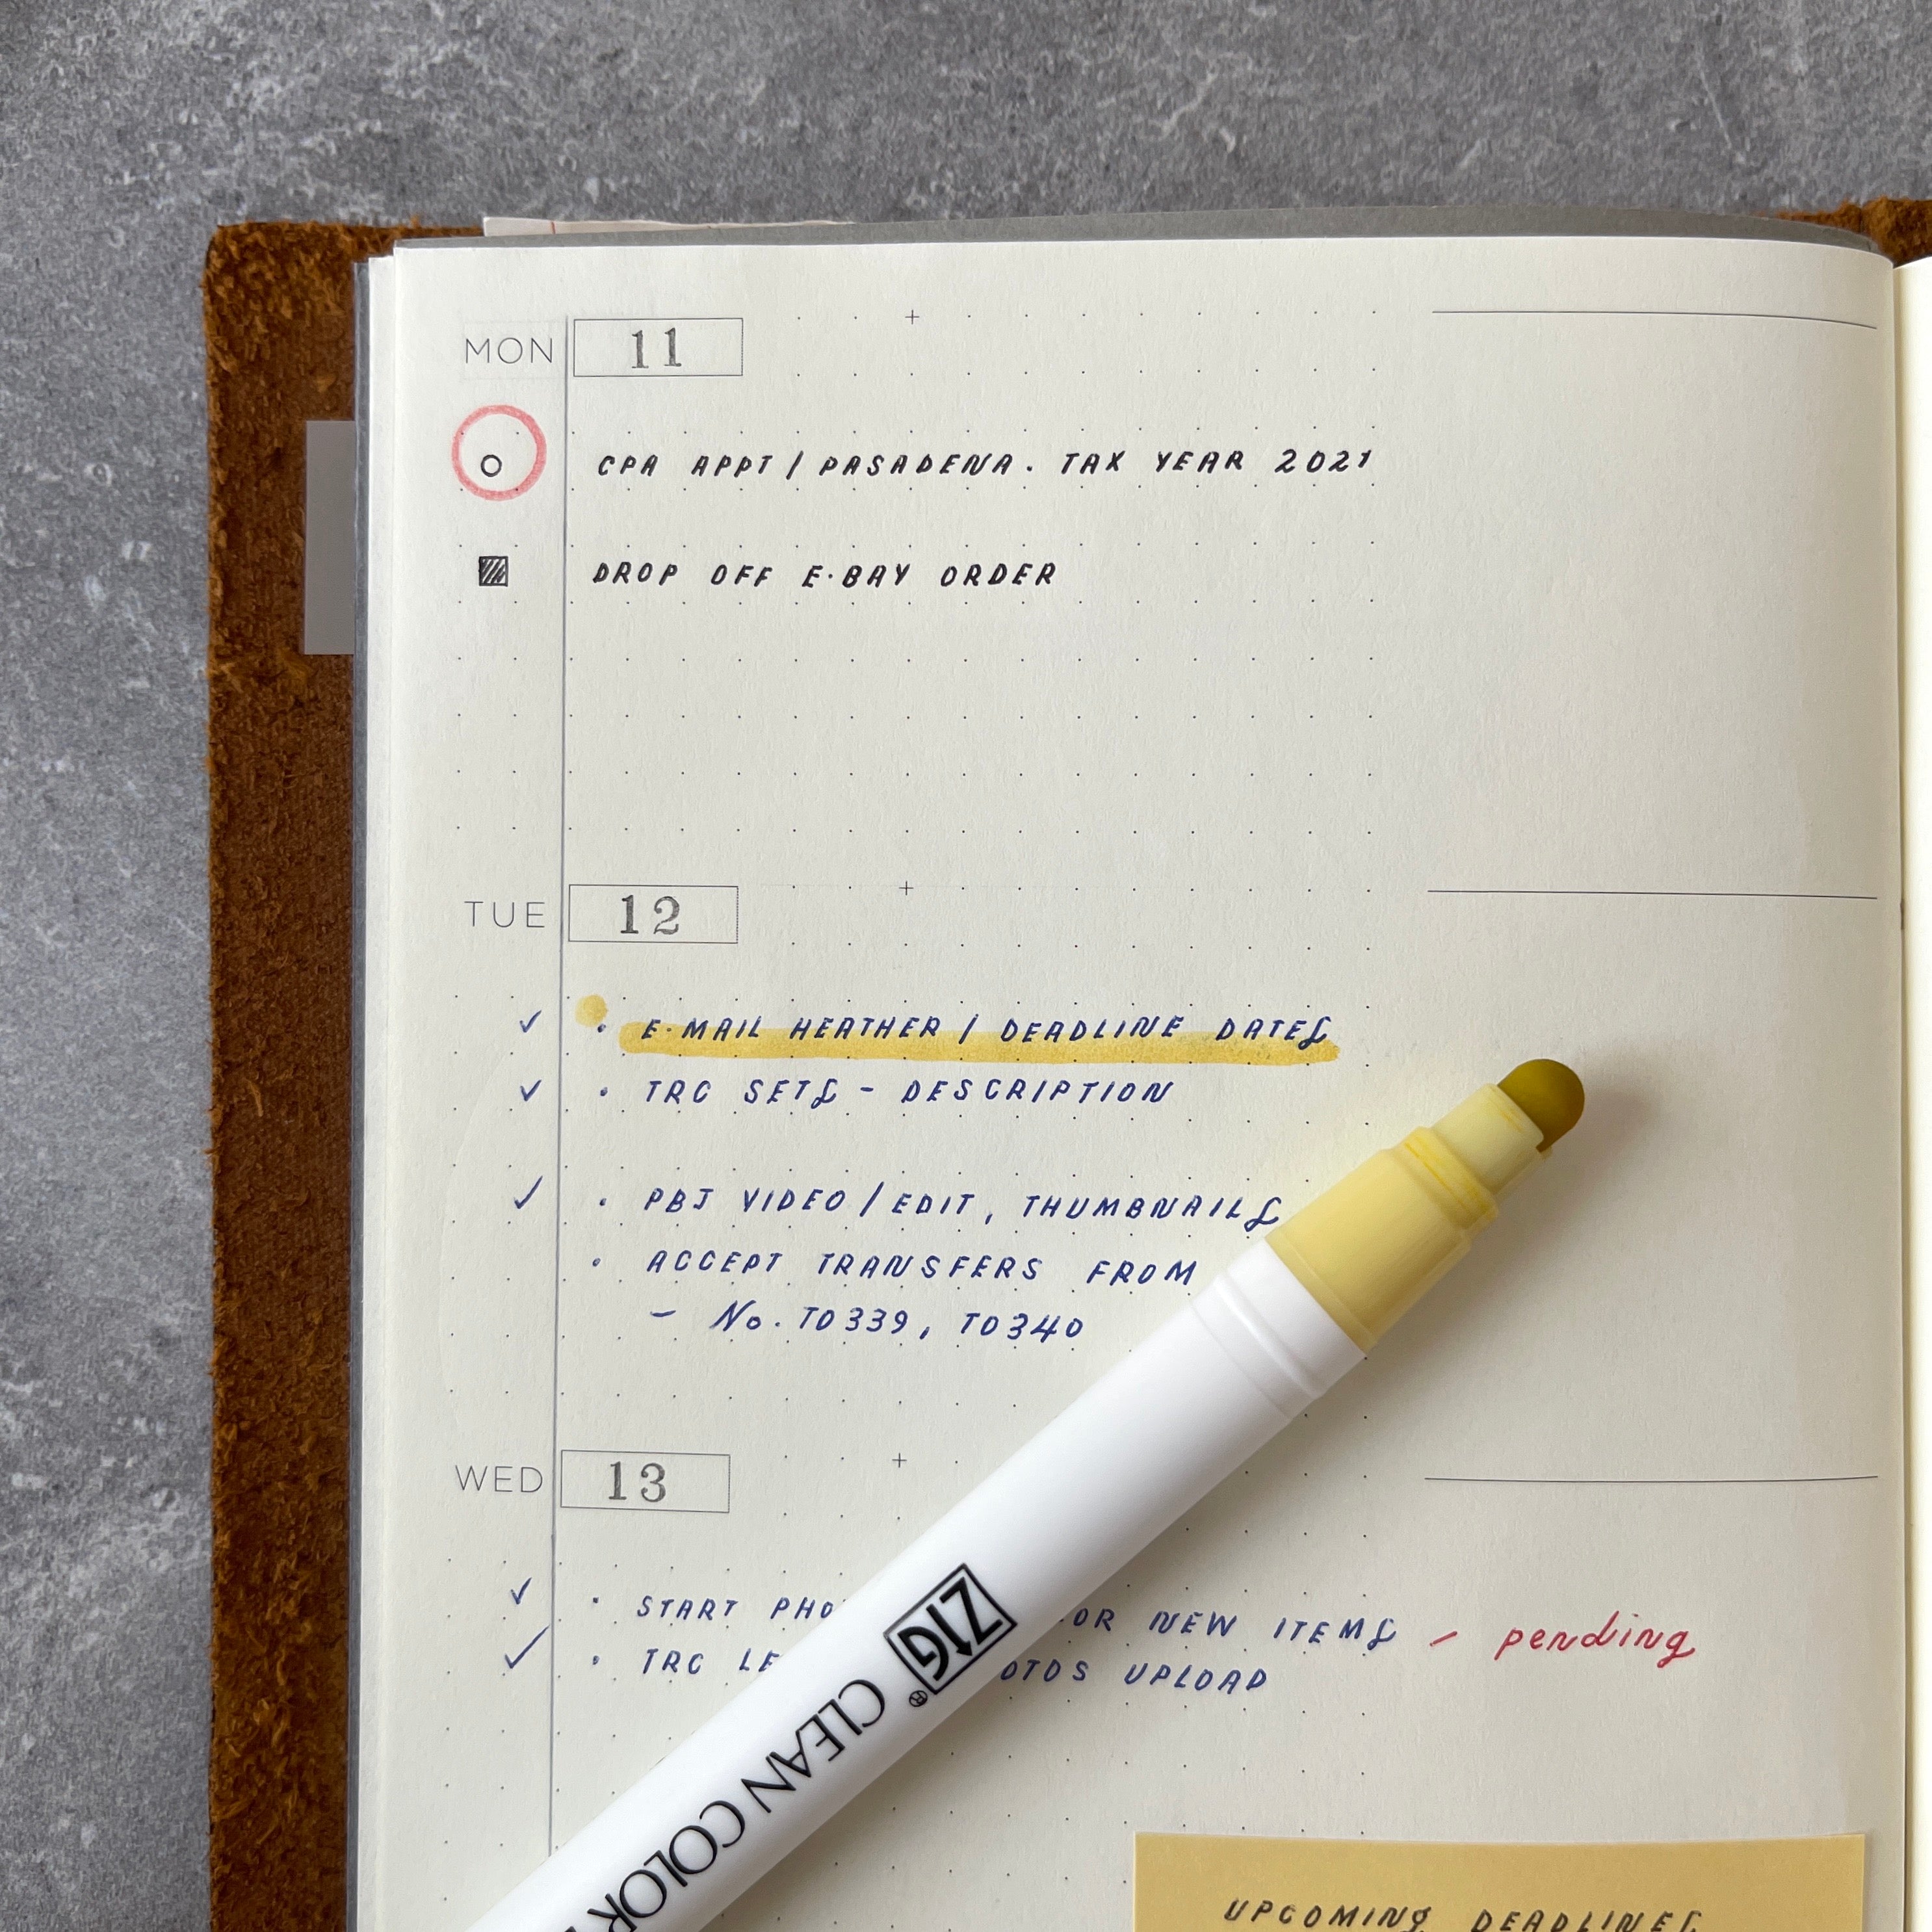 MON 11
CPA APPT / PASADENA. TAX YEAR 2021
DROP OFF E·BAY ORDER
TUE 12
E·MAIL HEATHER / DEADLINE DATES
TRC SETS - DESCRIPTION
PBJ VIDEO / EDIT, THUMBNAILS
ACCEPT TRANSFERS FROM
- No. T0339, T0340
WED 13
START NEW ITEMS - pending
TRC UPLOAD
ZIG® CLEAN COLOR
UPCOMING DEADLINES